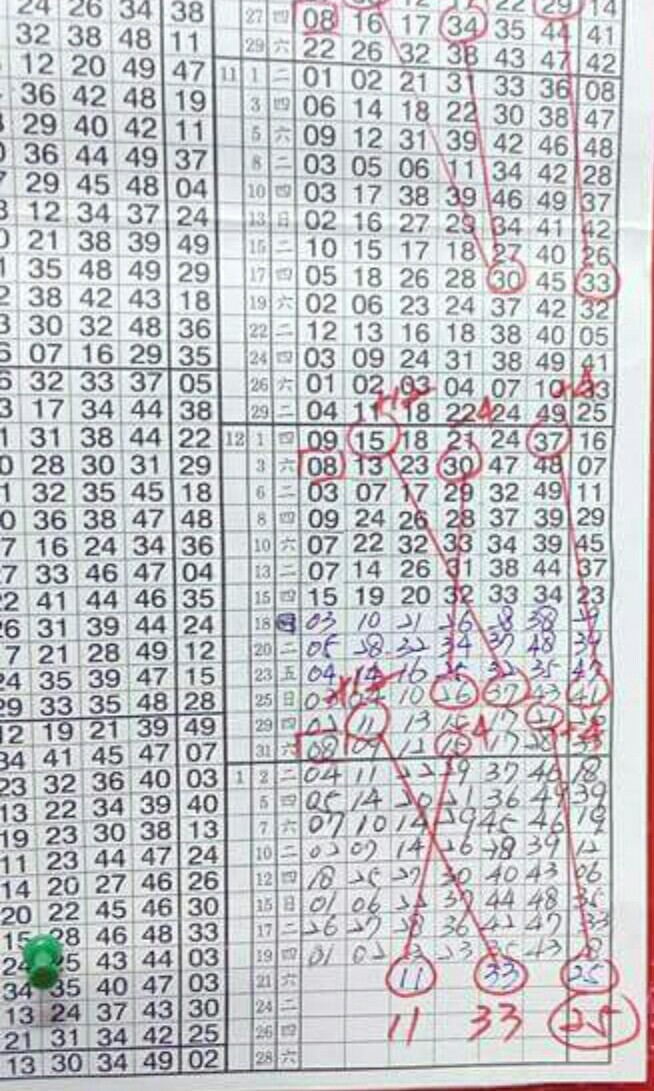 24 26 34 38 27 四 08 16 17 34 35 44 41
32 38 48 11 29 六 22 26 32 38 43 47 42
12 20 49 47 11 1 二 01 02 21 31 33 36 08
36 42 48 19 3 四 06 14 18 22 30 38 47
29 40 42 11 5 六 09 12 31 39 42 46 48
36 44 49 37 8 二 03 05 06 11 34 42 28
29 45 48 04 10 四 03 17 38 39 46 49 37
12 34 37 24 13 日 02 16 27 29 34 41 42
21 38 39 49 15 二 10 15 17 18 27 40 26
35 48 49 29 17 四 05 18 26 28 30 45 33
38 42 43 18 19 六 02 06 23 24 37 42 32
30 32 48 36 22 二 12 13 16 18 38 40 05
07 16 29 35 24 四 03 09 24 31 38 49 41
32 33 37 05 26 六 01 02 03 04 07 10 33
17 34 44 38 29 二 04 11 18 22 24 49 25
31 38 44 22 12 1 四 09 15 18 21 24 37 16
28 30 31 29 3 六 08 13 23 30 47 48 07
32 35 45 18 6 二 03 07 17 29 32 49 11
36 38 47 48 8 四 09 24 26 28 37 39 29
16 24 34 36 10 六 07 22 32 33 34 39 45
33 46 47 04 13 二 07 14 26 31 38 44 37
41 44 46 35 15 四 15 19 20 32 33 34 23
31 39 44 24 18 03 10 21 26 28 38
21 28 49 12 20 二 05 28 32 34 37 48 39
35 39 47 15 23 五 04 14 16 35 47
33 35 48 28 25 日 10 26 37 43 41
12 19 21 39 49 29 四 11 13 15 17
34 41 45 47 07 31 六 08 09 12 17 28
23 32 36 40 03 1 2 二 04 11 22 29 37 46 18
13 22 34 39 40 5 四 05 14 20 21 36 49 39
19 23 30 38 13 7 六 07 10 14 29 45 46 19
11 23 44 47 24 10 二 07 14 26 28 39 12
14 20 27 46 26 12 四 18 25 27 30 40 43 06
20 22 45 46 30 15 日 01 06 22 37 44 48 35
15 28 46 48 33 17 二 26 27 28 36 42 47 33
24 25 43 44 03 19 四 01 02 23 43
34 35 40 47 03 21 六 11 33 25
13 24 37 43 30 24 二 11 33 25
21 31 34 42 25 26 四
13 30 34 49 02 28 六